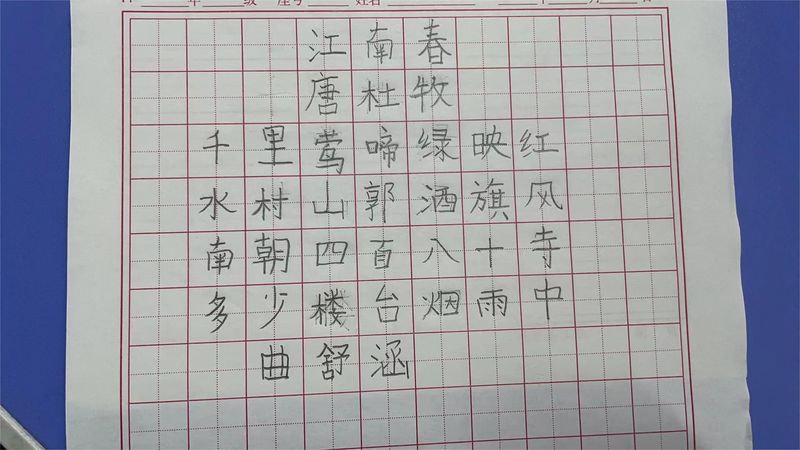 年 级 座号 姓名 年 月 日
江南春
唐杜牧
千里莺啼绿映红
水村山郭酒旗风
南朝四百八十寺
多少楼台烟雨中
曲舒涵